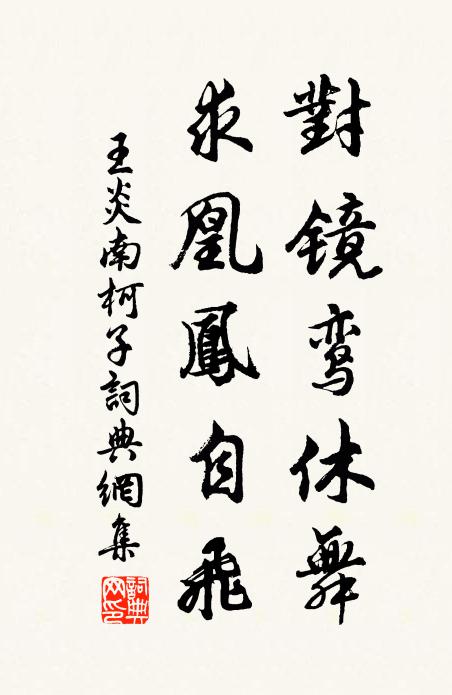 對镜鸾休舞
求凰鳳自飛
王炎南柯子詞典網集
詞典網印